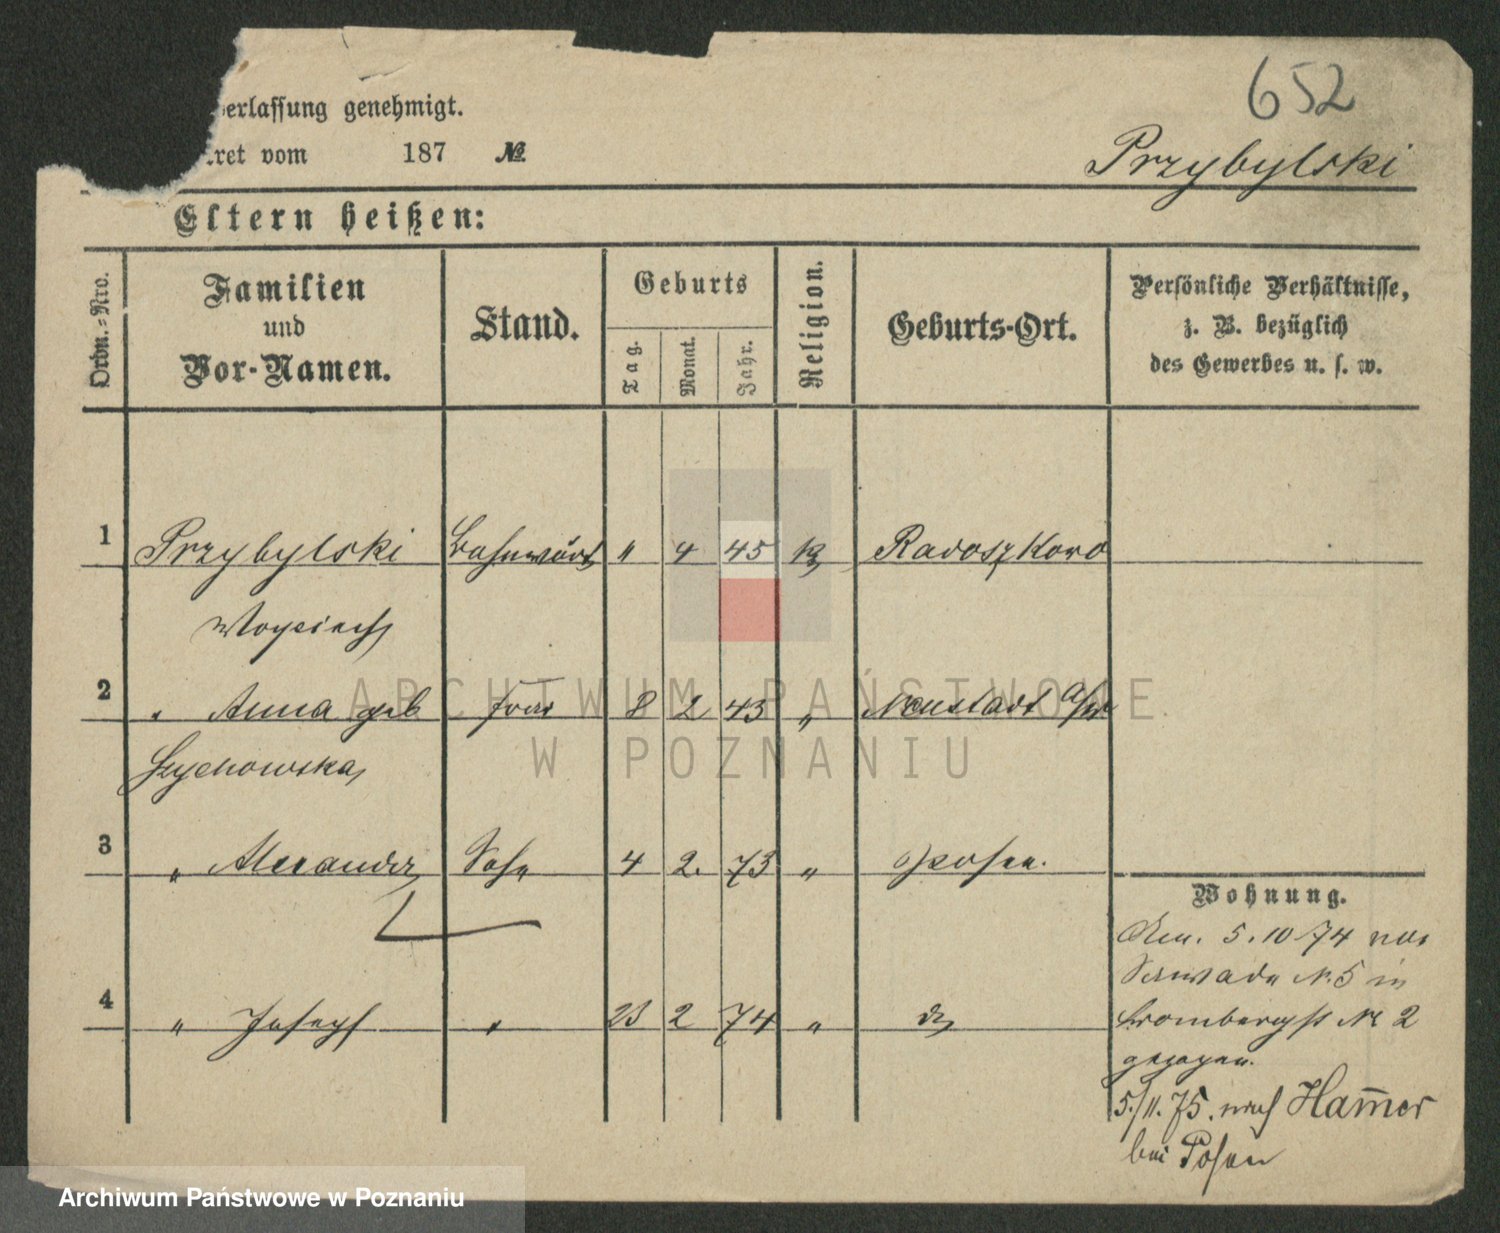 652
erlassung genehmigt.
ret vom 187 №
Przybylski
Eltern heißen:
Ordn.-Nro.
Familien
und
Vor-Namen.
Stand.
Geburts
Tag.
Monat.
Jahr.
Religion.
Geburts-Ort.
Persönliche Verhältnisse,
z. B. bezüglich
des Gewerbes u. s. w.
1 Przybylski Bahnwärt „ 4 45 k Radoszkowo
Woyciech
2 „ Anna geb Frau 8 2 43 „ Neustadt a/W
Szychowska
3 „ Alexander Sohn 4 2. 73 „ Posen.
Wohnung.
5. 10 74 von
N. 5 in
4 „ Joseph „ 23 2 74 „ do
Brombergst № 2
gezogen.
5./11. 75. nach Hamer
bei Posen
ARCHIWUM PAŃSTWOWE
W POZNANIU
Archiwum Państwowe w Poznaniu